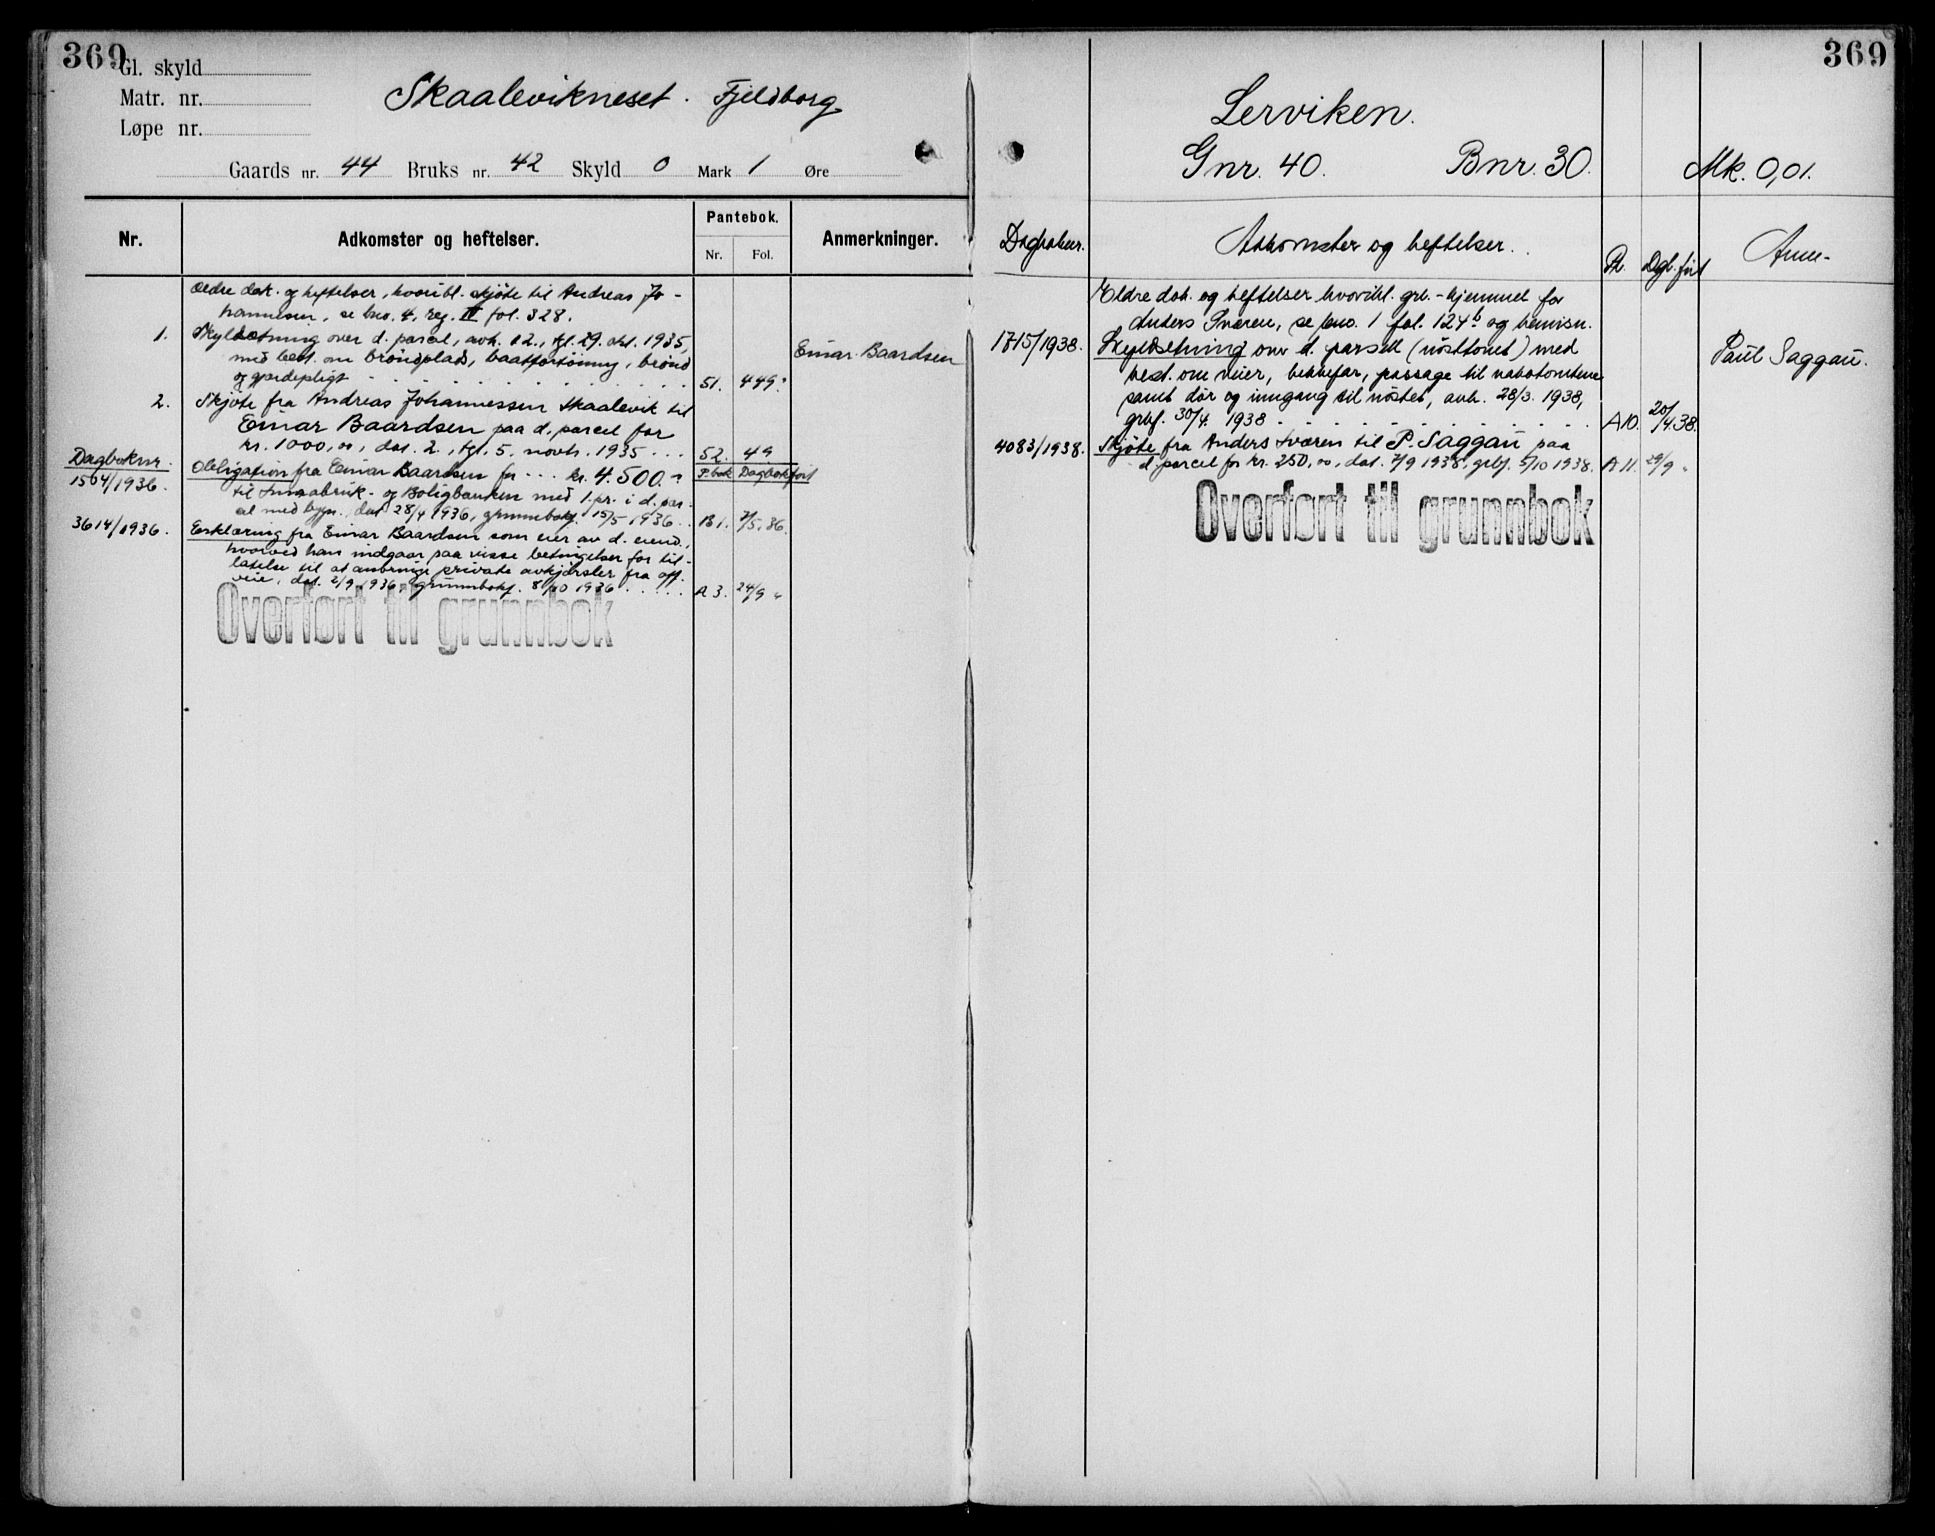 369
Gl. skyld
Matr. nr.
Løpe nr.
Skaalevikneset. Fjeldborg
Gaards nr. 44 Bruks nr. 42 Skyld 0 Mark 1 Øre
Nr.
Adkomster og heftelser.
Pantebok.
Nr. Fol.
Anmerkninger.
Ældre dok. og heftelser, hvoribl. skjøte til Andreas Jo-
hannesen, se bno. 4, reg. III fol. 328.
1. Skyldsetning over d. parcel, avh. 12., tgl. 29. okt. 1935,
med best. om brøndplads, baatfortøining, brønd
og gjerdepligt 51. 449. Einar Baardsen
2. Skjøte fra Andreas Johannessen Skaalevik til
Einar Baardsen paa d. parcel for
kr. 1000,00, dat. 2., tgl. 5. novbr. 1935 52. 49
Dagboknr. P.bok Dagbokført
1564/1936. Obligation fra Einar Baardsen for kr. 4.500.-
til Småbruk- og Boligbanken med 1. pr. i d. par-
cel med bygn., dat 28/4 1936, grunnbokf. 15/5 1936 B1. 7/5.36.
3614/1936. Erklæring fra Einar Baardsen som eier av d. eiend.,
hvorved han indgaar paa visse betingelser for til-
latelse til at anbringe private avkjørsler fra off.
veie, dat. 2/9 1936, grunnbokf. 8/10 1936 A3. 24/9 "
Overført til grunnbok
369
Lerviken.
Gnr. 40. Bnr. 30. Mk. 0,01.
Dagboknr.
Adkomster og heftelser.
Pb. Dgb.ført
Anm-
Eldre dok. og heftelser hvoribl. grb.-hjemmel for
Anders Sværen, se bno. 1 fol. 124b og henvisn.
1715/1938. Skyldsetning over d. parsell (nøsttomt) med
best. om veier, bekkefar, passage til nabotomtene
samt dør og inngang til nøstet, avh. 28/3. 1938,
grbf. 30/4. 1938 A10. 20/4.38. Paul Saggau.
4083/1938. Skjøte fra Anders Sværen til P. Saggau paa
d. parcel for kr. 250,00, dat. 7/9 1938, grbf. 5/10 1938. A 11. 29/9 "
Overført til grunnbok